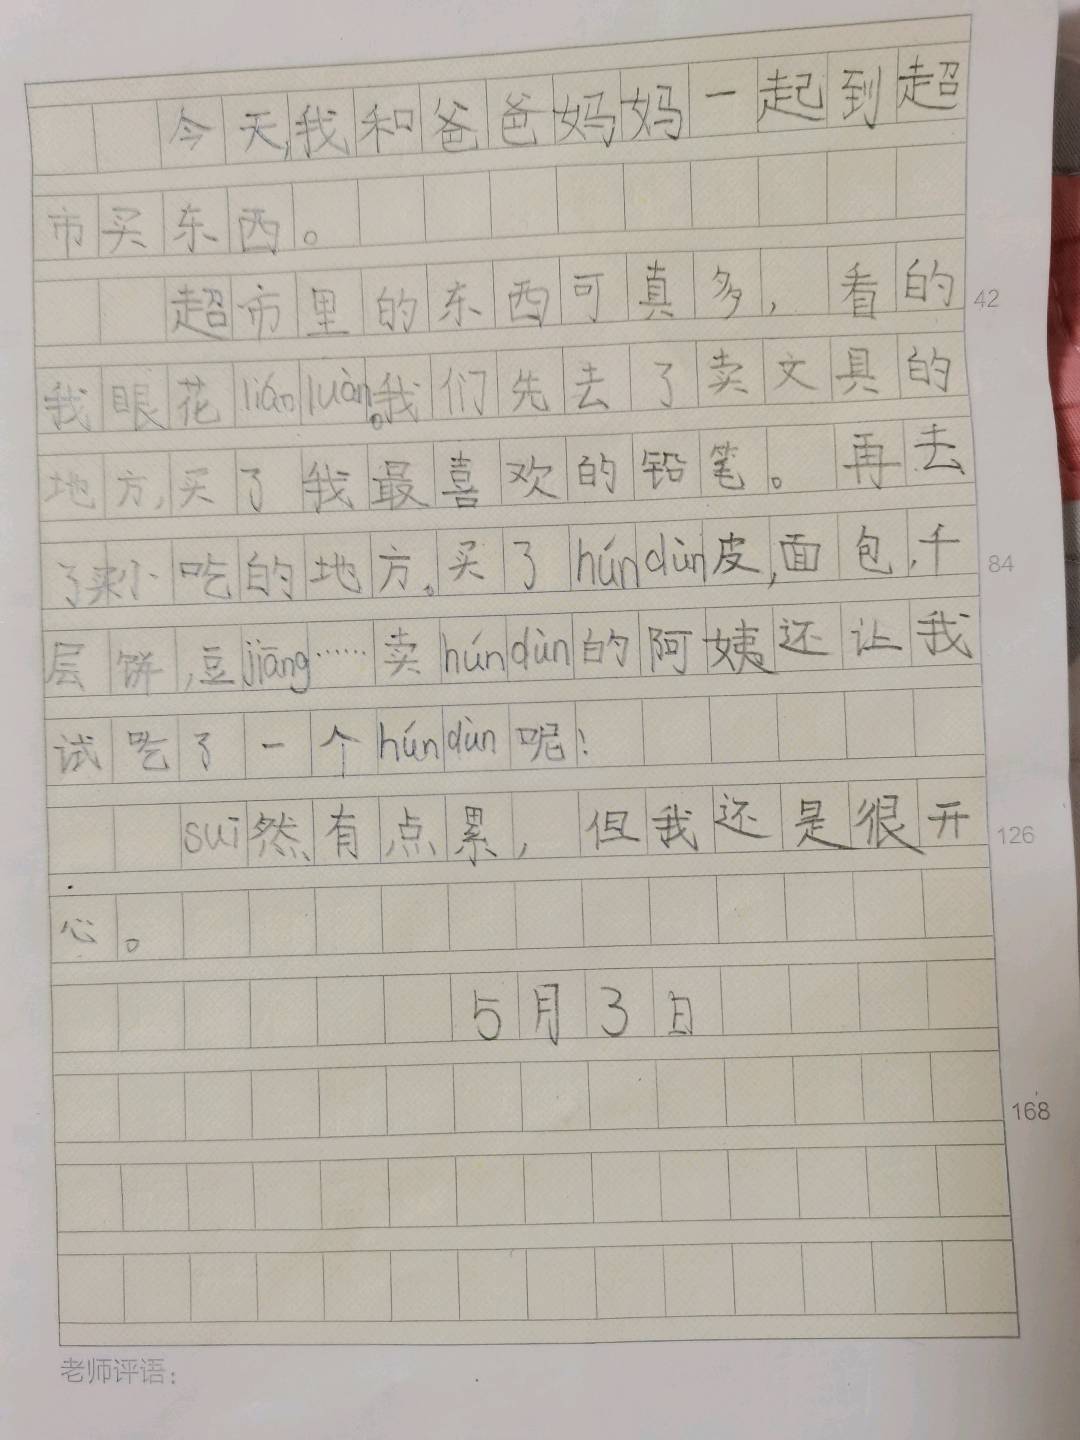 今天,我和爸爸妈妈一起到超
市买东西。
超市里的东西可真多,看的
42
我眼花lián luàn。我们先去了卖文具的
地方,买了我最喜欢的铅笔。再去
了卖小吃的地方。买了hún dùn皮,面包,千
84
层饼,豆jiāng……卖hún dùn的阿姨还让我
试吃了一个hún dùn呢!
suī然有点累,但我还是很开
126
心。
5月3日
168
老师评语: